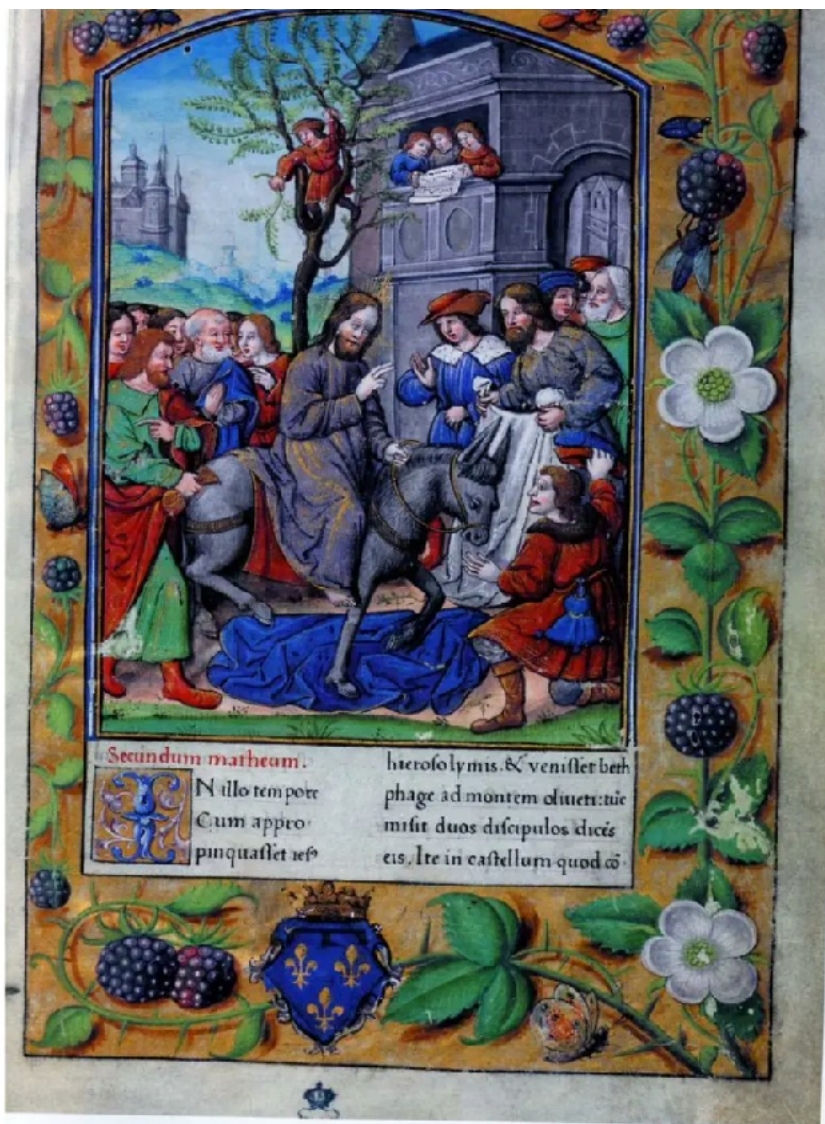 Secundum matheum.
IN illo tempore
Cum appro
pinquasset ies⁹
hierosolymis. & venisset beth
phage ad montem oliueti: tūc
misit duos discipulos dicēs
eis. Ite in castellum quod cō